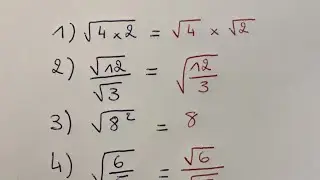 1) √(4 × 2) = √4 × √2
2) √12 / √3 = √(12 / 3)
3) √(8²) = 8
4) √(6 / ) = √6 / √